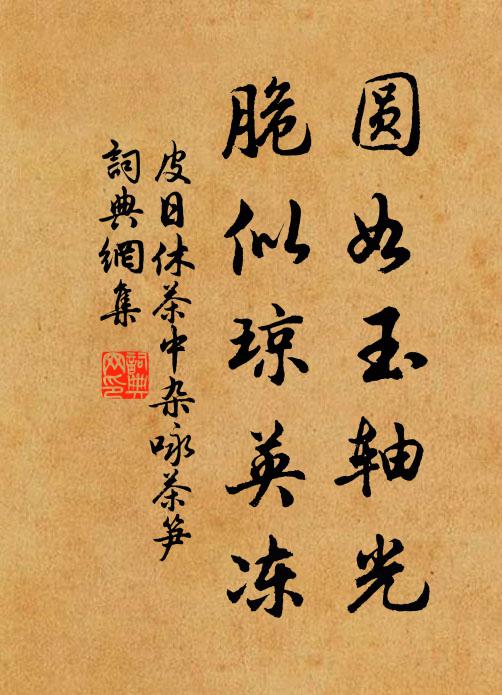 圆如玉轴光
脆似琼英冻
皮日休茶中杂咏茶笋
詞典網集
詞典网印